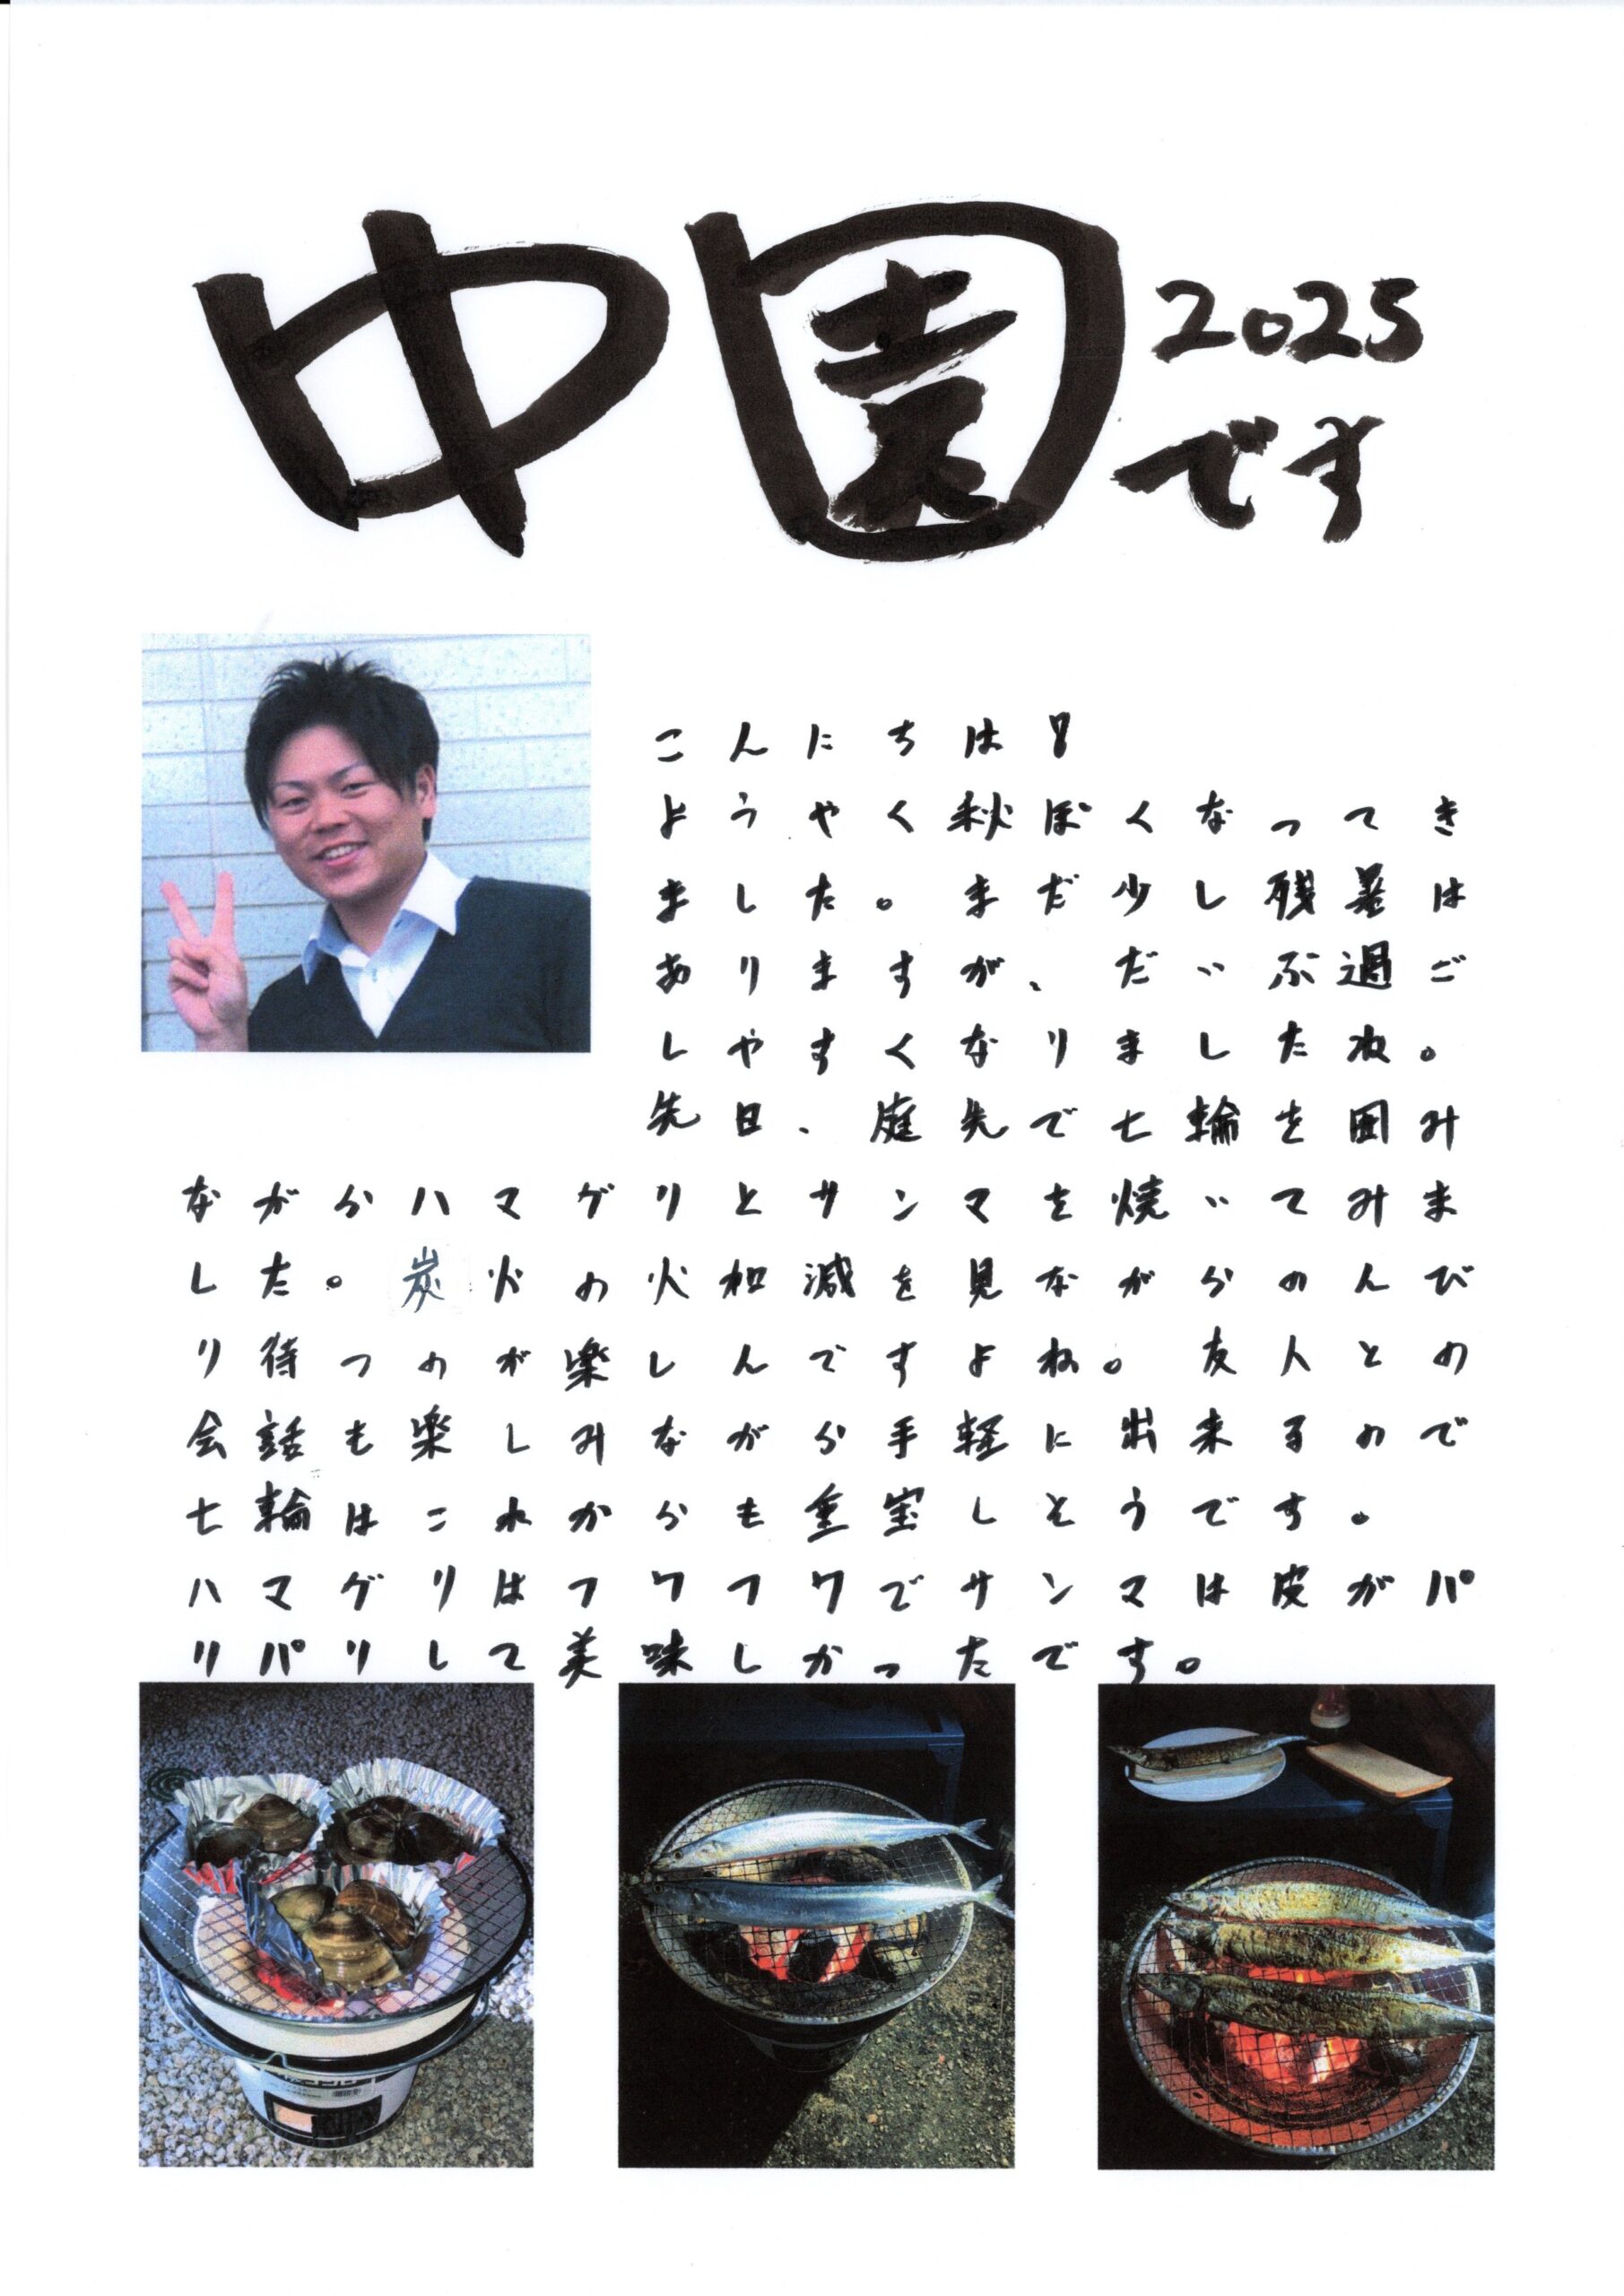 中園
2025
です
こんにちは!
ようやく秋ぽくなってき
ました。まだ少し残暑は
ありますが、だいぶ過ご
しやすくなりましたね。
先日、庭先で七輪を囲み
ながらハマグリとサンマを焼いてみま
した。炭火の火加減を見ながらのんび
り待つのが楽しんですよね。友人との
会話も楽しみながら手軽に出来るので
七輪はこれからも重宝しそうです。
ハマグリはフワフワでサンマは皮がパ
リパリして美味しかったです。